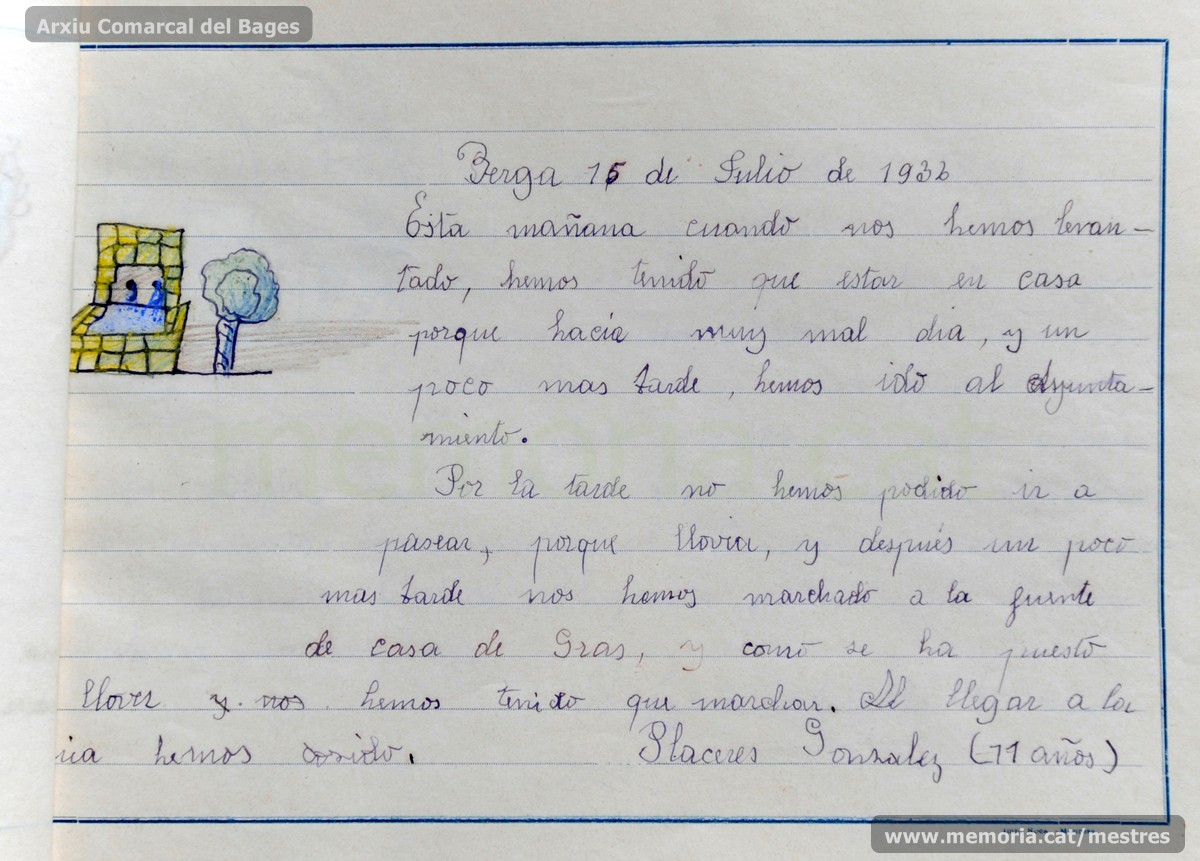 Arxiu Comarcal del Bages
Berga 15 de Julio de 1932
Esta mañana cuando nos hemos levan-
tado, hemos tenido que estar en casa
porque hacia muy mal dia, y un
poco mas tarde, hemos ido al Ayunta-
miento.
Por la tarde no hemos podido ir a
pasear, porque llovia, y después un poco
mas tarde nos hemos marchado a la fuente
de casa de Gras, y como se ha puesto
llover y nos hemos tenido que marchar. Al llegar a la
hemos cosido. Placeres Gonzalez (11 años)
memoria.cat
www.memoria.cat/mestres